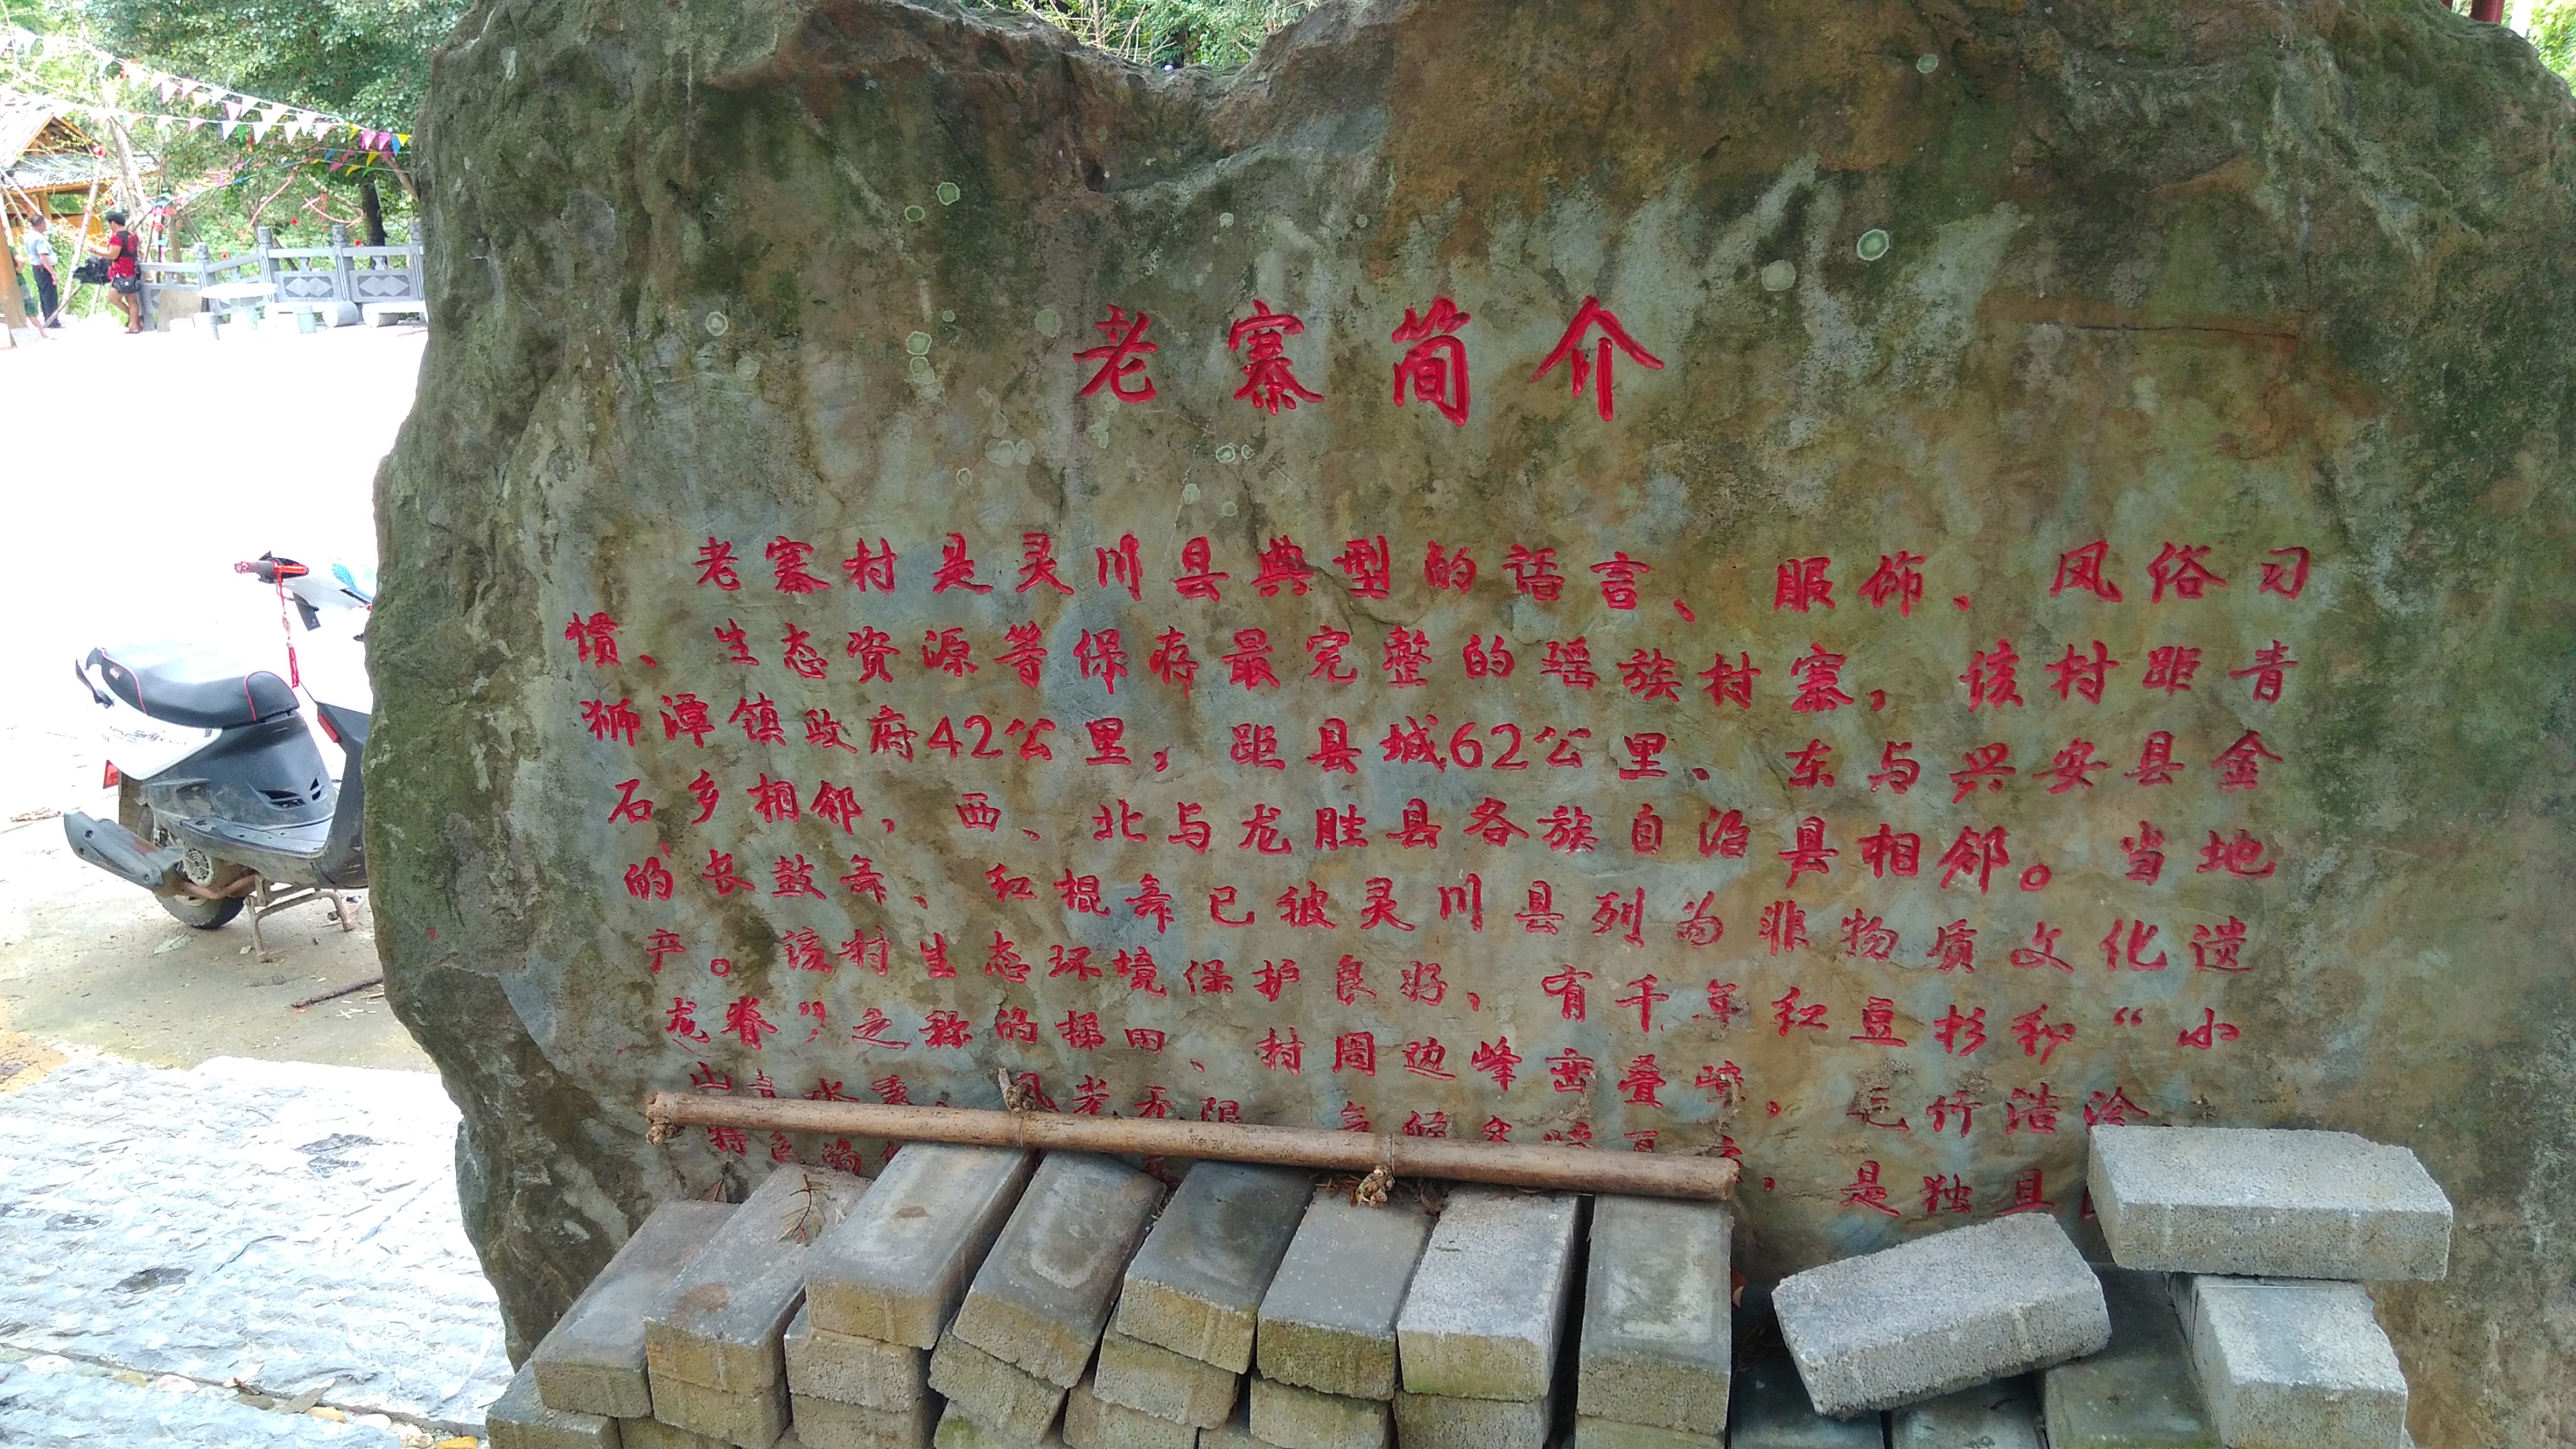 老寨简介
老寨村是灵川县典型的语言、服饰、风俗习
惯、生态资源等保存最完整的瑶族村寨，该村距青
狮潭镇政府42公里，距县城62公里。东与兴安县金
石乡相邻，西、北与龙胜县各族自治县相邻。当地
的长鼓舞、红棍舞已被灵川县列为非物质文化遗
产。该村生态环境保护良好，有千年红豆杉和“小
龙脊”之称的梯田、村周边峰峦叠嶂，毛竹浩
山青水秀、风光无限
特色，是独具